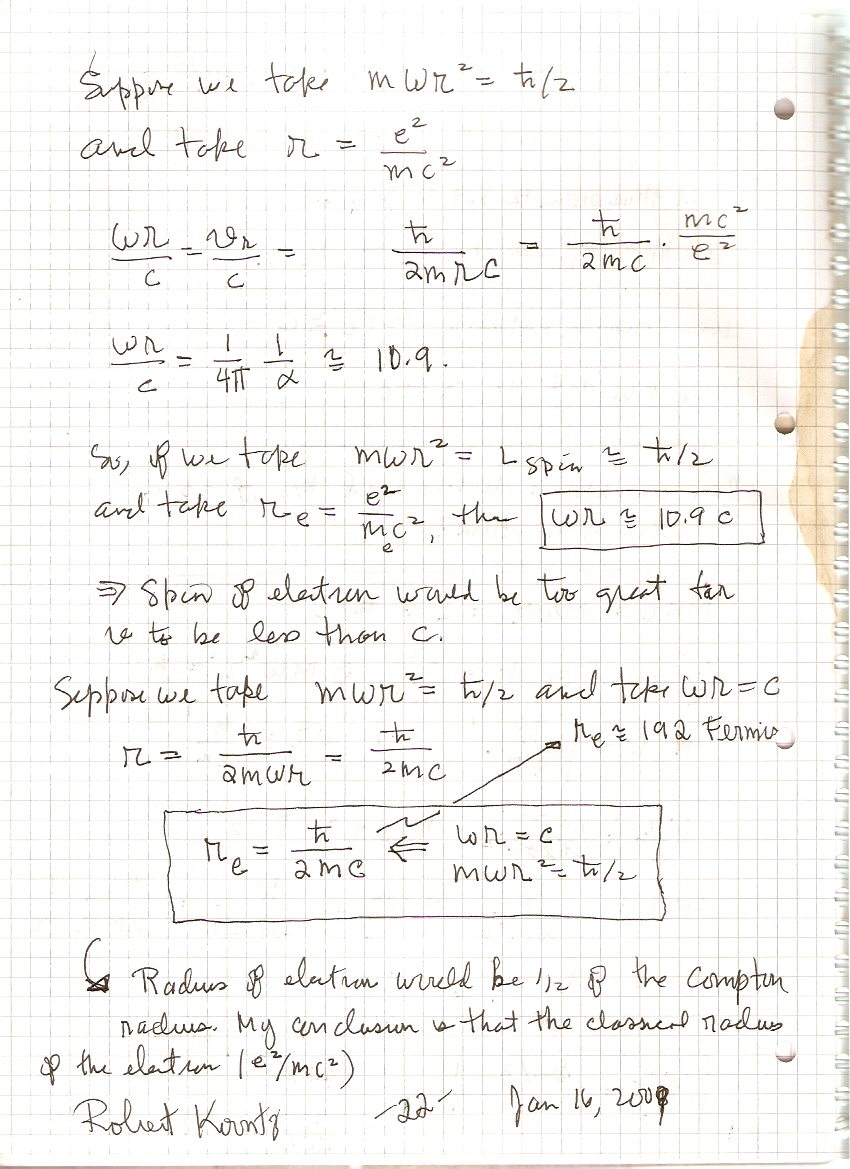 Suppose we take mωr² = ħ/2
and take r = e²/mc²
ωr/c = vr/c = ħ/2mrc = ħ/2mc · mc²/e²
ωr/c = 1/4π 1/α ≅ 10.9.
So, if we take mωr² = L spin ≅ ħ/2
and take re = e²/mec², then ωr ≅ 10.9 c
⇒ Spin of electron would be too great for
v to be less than c.
Suppose we take mωr² = ħ/2 and take ωr = c
re ≅ 192 Fermis
r = ħ/2mωr = ħ/2mc
re = ħ/2mc ⇐ ωr = c
mωr² = ħ/2
Radius of electron would be 1/2 of the Compton
radius. My conclusion is that the classical radius
of the electron (e²/mc²)
Robert Koontz -22- Jan 16,